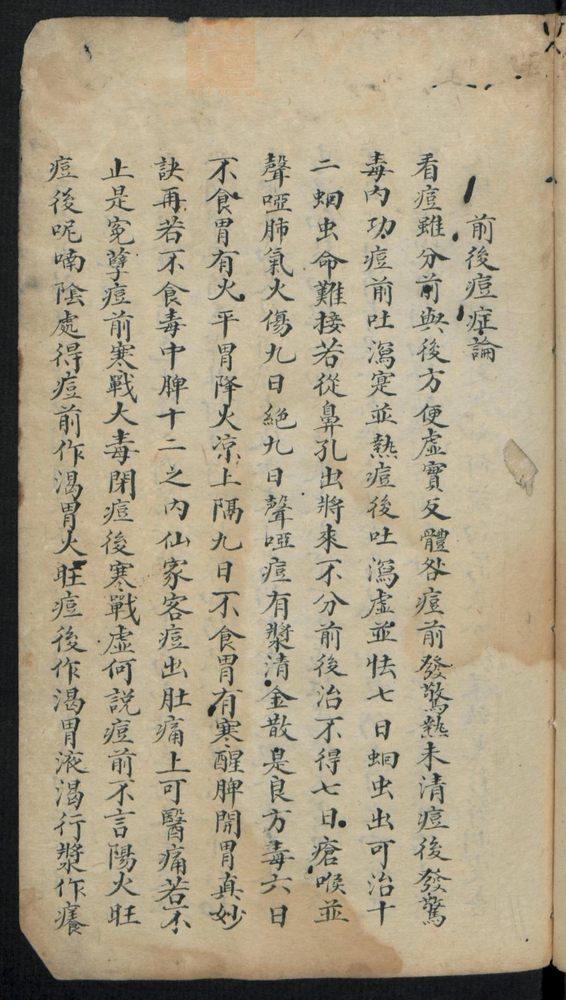 前後痘症論
看痘雖分前與後方便虛實反體咎痘前發驚熱未清痘後發驚
毒內功痘前吐瀉寔並熱痘後吐瀉虛並怯七日蛔虫出可治十
二蛔虫命難接若從鼻孔出將來不分前後治不得七日瘡喉並
聲啞肺氣火傷九日絕九日聲啞痘有漿清金散是良方毒六日
不食胃有火平胃降火凉上隔九日不食胃有寒醒脾開胃真妙
訣再若不食毒中脾十二之內仙家客痘出肚痛上可醫痛若不
止是冤孽痘前寒戰大毒閉痘後寒戰虛何説痘前不言陽火旺
痘後呢喃陰處得痘前作渴胃火旺痘後作渴胃液渴行漿作癢